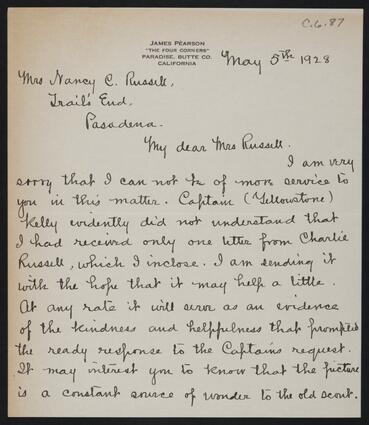 C.6.87
JAMES PEARSON
"THE FOUR CORNERS"
PARADISE, BUTTE CO.
CALIFORNIA
May 5th 1928
Mrs Nancy C. Russell,
Trail's End,
Pasadena.
My dear Mrs Russell.
I am very
sorry that I can not be of more service to
you in this matter. Captain (Yellowstone)
Kelly evidently did not understand that
I had received only one letter from Charlie
Russell, which I inclose. I am sending it
with the hope that it may help a little.
At any rate it will serve as an evidence
of the kindness and helpfulness that prompted
the ready response to the Captains request.
It may interest you to know that the picture
is a constant source of wonder to the old scout.